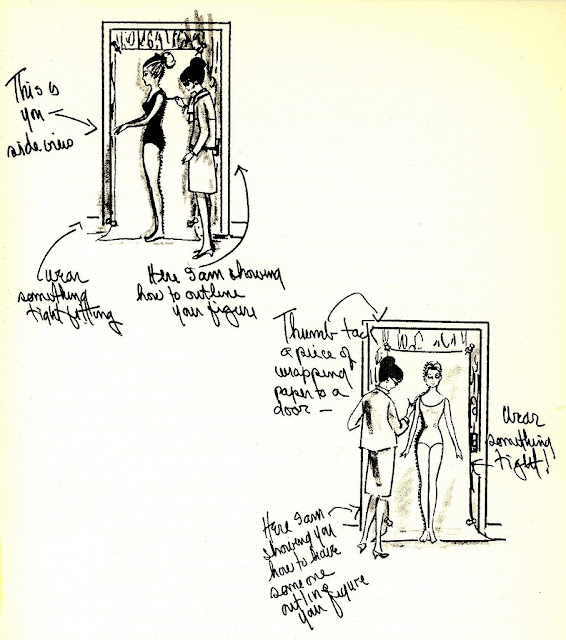 This is
you
side view
Wear
something
tight fitting
Here I am showing
how to outline
your figure
Thumb tack
a piece of
wrapping
paper to a
door —
Wear
something
tight!
Here I am
showing you
how to have
someone
outline
your figure